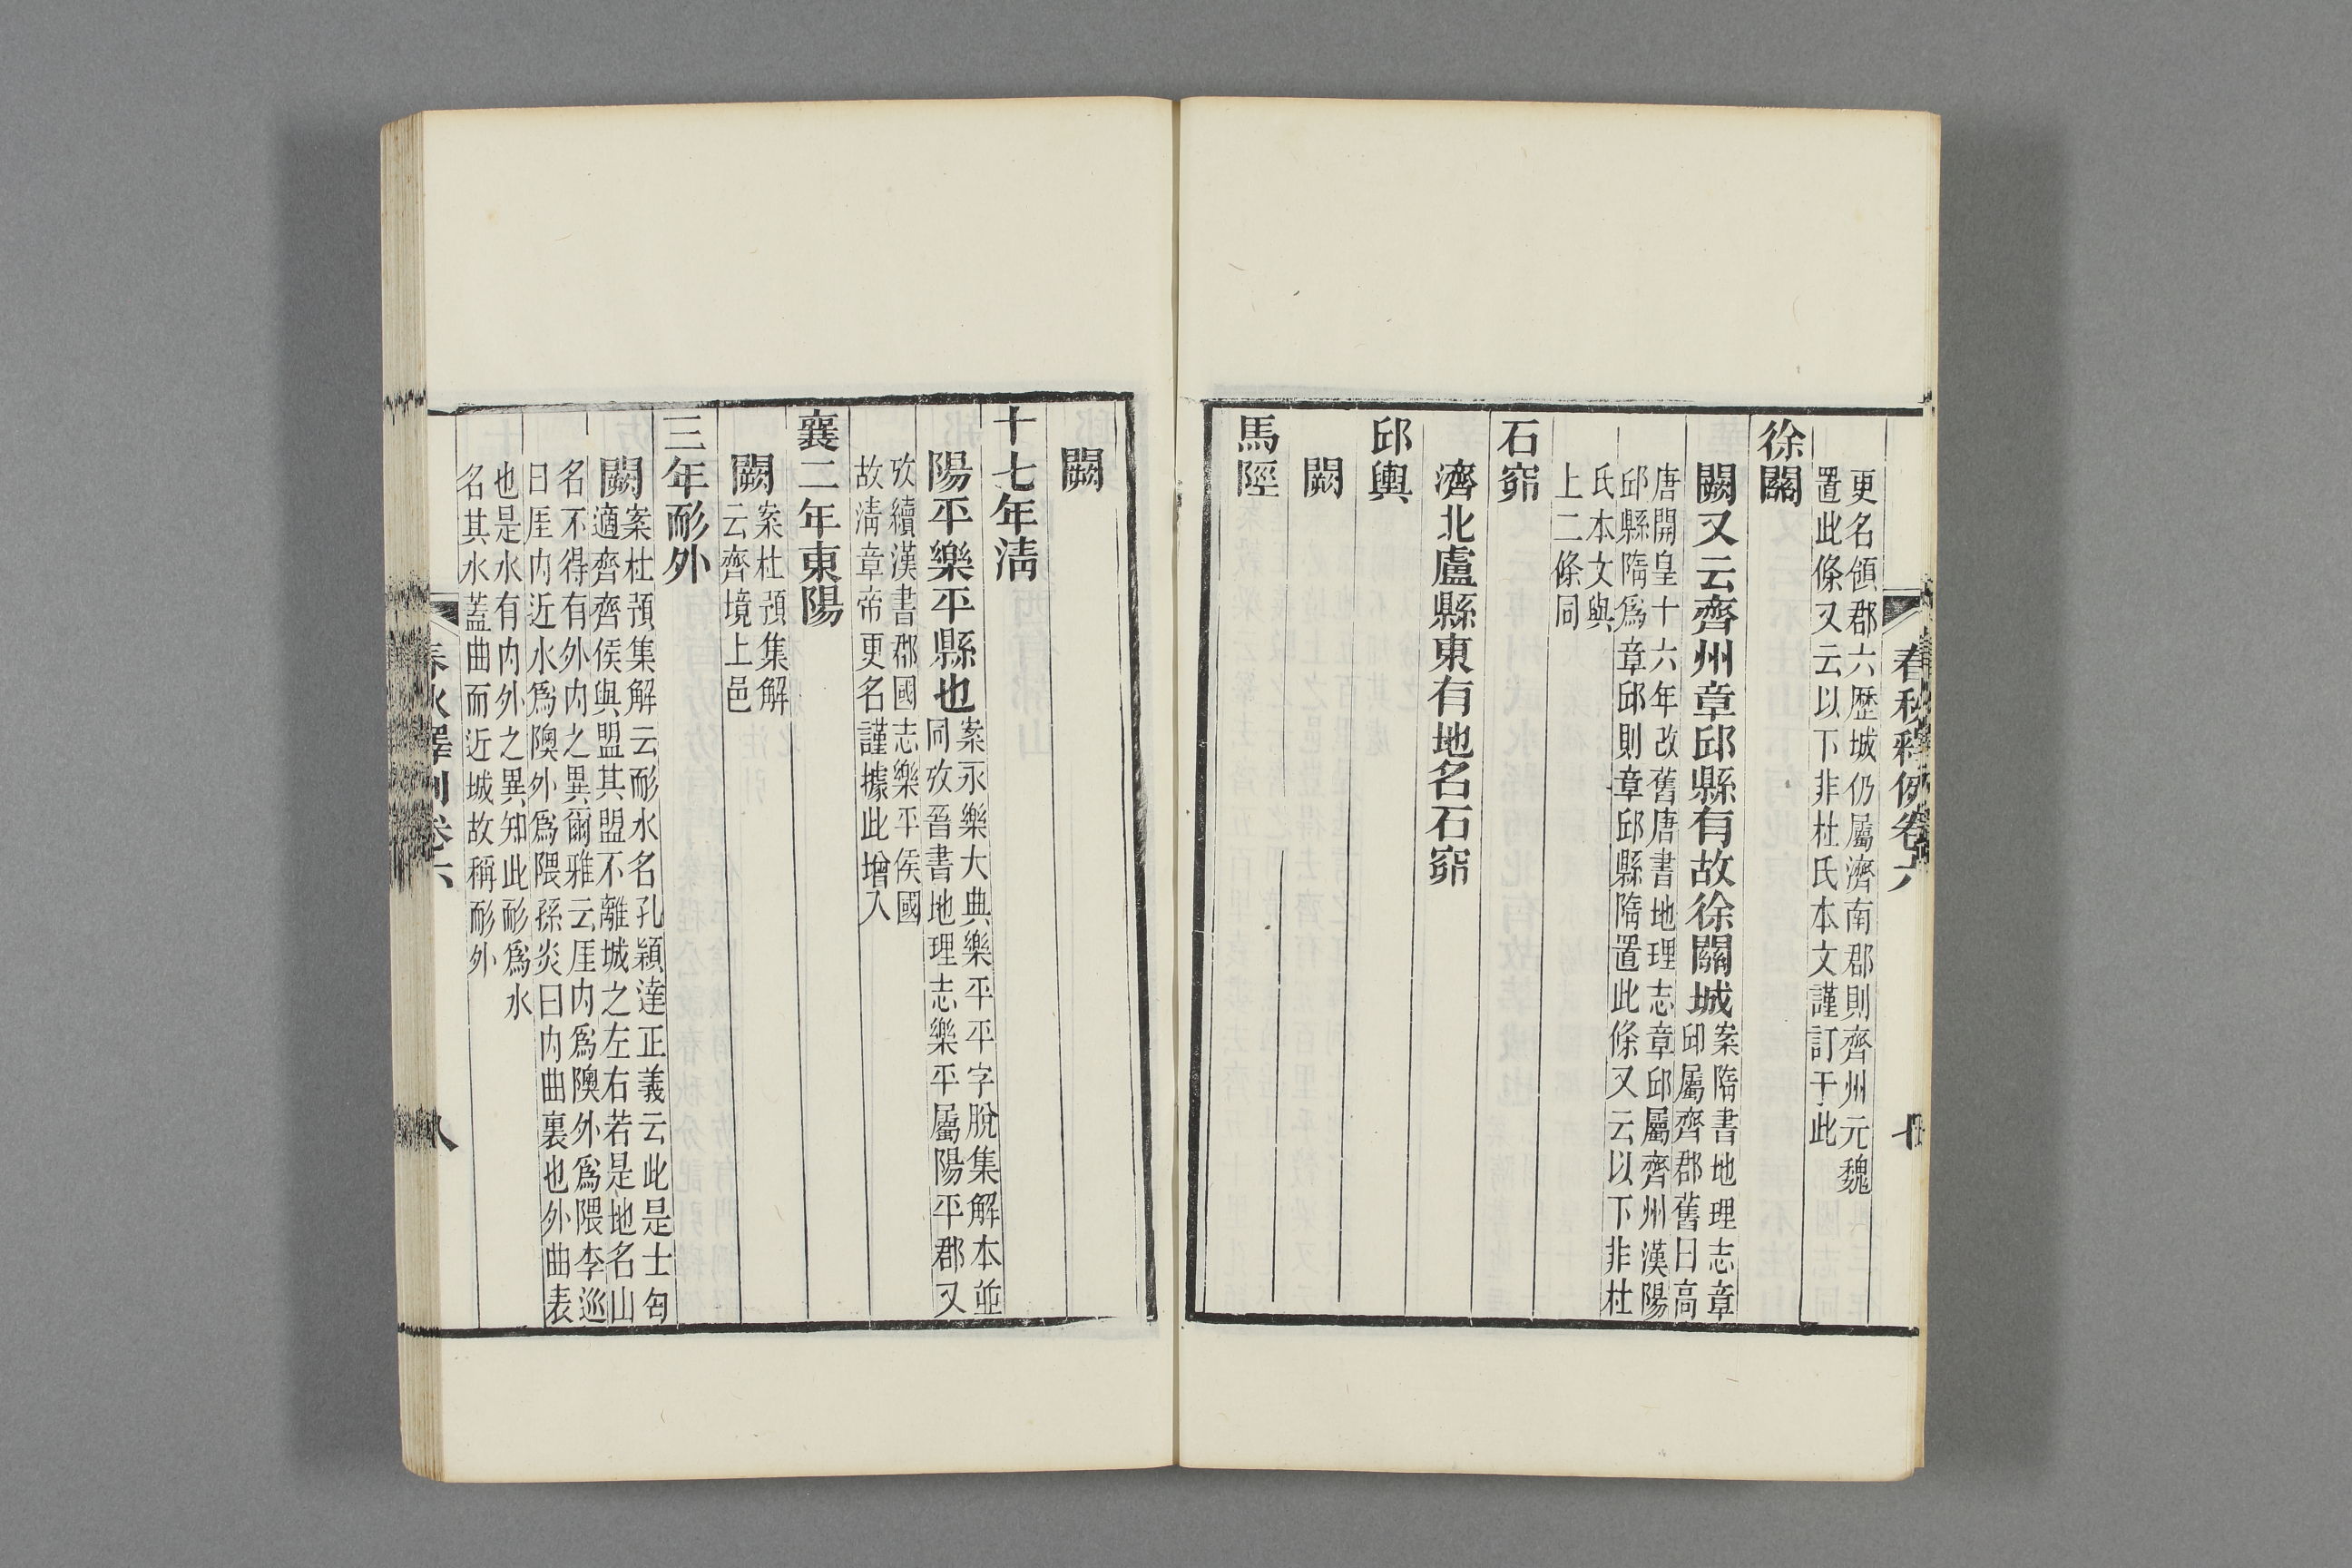 春秋釋例卷六
七
更名領郡六歷城仍屬濟南郡則齊州元魏
置此條又云以下非杜氏本文謹訂于此
徐關
闕又云齊州章邱縣有故徐關城
案隋書地理志章
邱屬齊郡舊曰高
唐開皇十六年改舊唐書地理志章邱屬齊州漢陽
邱縣隋爲章邱則章邱縣隋置此條又云以下非杜
氏本文與
上二條同
石窌
濟北盧縣東有地名石窌
邱輿
闕
馬陘
闕
十七年淸
陽平樂平縣也
案永樂大典樂平平字脫集解本並
同攷晉書地理志樂平屬陽平郡又
攷續漢書郡國志樂平侯國
故淸章帝更名謹據此增入
襄二年東陽
闕
案杜預集解
云齊境上邑
三年耏外
闕
案杜預集解云耏水名孔穎達正義云此是士匄
適齊齊侯與盟其盟不離城之左右若是地名山
名不得有外內之異爾雅云厓內爲隩外爲隈李巡
曰厓內近水爲隩外爲隈孫炎曰內曲裏也外曲表
也是水有內外之異知此耏爲水
名其水蓋曲而近城故稱耏外
春秋釋例卷六
八